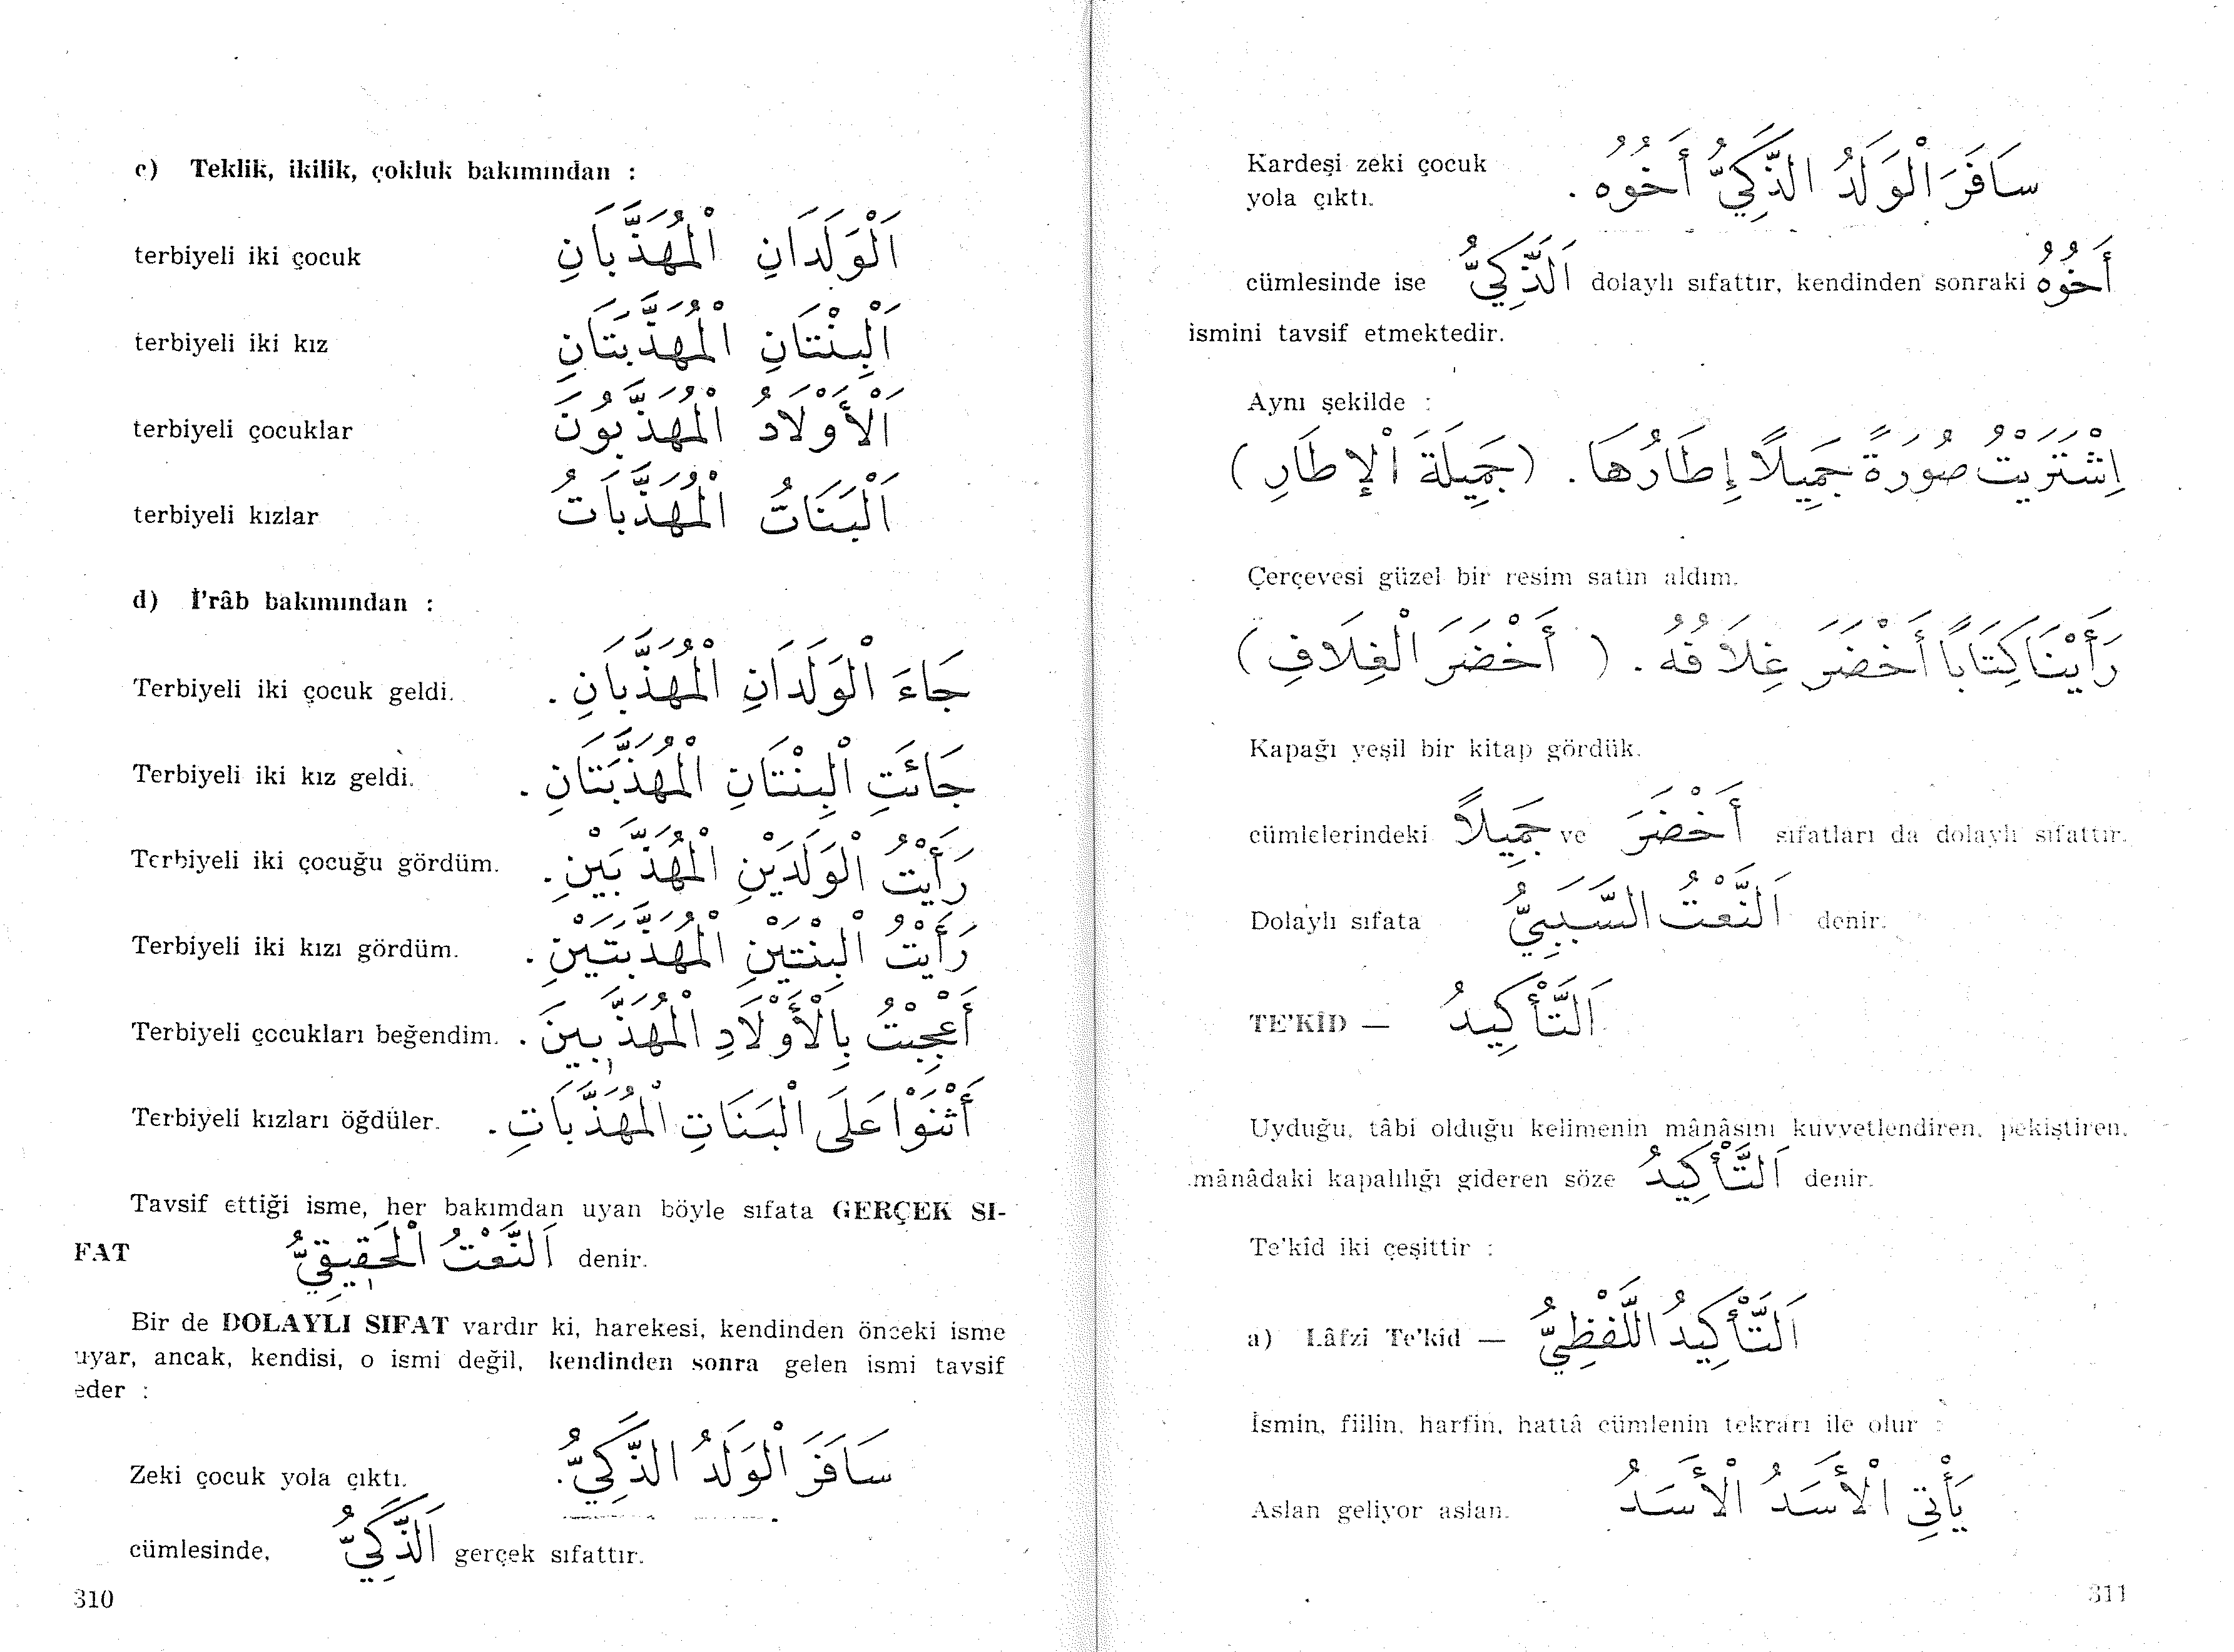 c) Teklik, ikilik, çokluk bakımından :
terbiyeli iki çocuk اَلْوَلَدَانِ الْمُهَذَّبَانِ
terbiyeli iki kız اَلْبِنْتَانِ الْمُهَذَّبَتَانِ
terbiyeli çocuklar اَلْأَوْلَادُ الْمُهَذَّبُونَ
terbiyeli kızlar اَلْبَنَاتُ الْمُهَذَّبَاتُ
d) İ'râb bakımından :
Terbiyeli iki çocuk geldi. جَاءَ الْوَلَدَانِ الْمُهَذَّبَانِ .
Terbiyeli iki kız geldi. جَائَتِ الْبِنْتَانِ الْمُهَذَّبَتَانِ .
Terbiyeli iki çocuğu gördüm. رَأَيْتُ الْوَلَدَيْنِ الْمُهَذَّبَيْنِ .
Terbiyeli iki kızı gördüm. رَأَيْتُ الْبِنْتَيْنِ الْمُهَذَّبَتَيْنِ .
Terbiyeli çocukları beğendim. أَعْجِبْتُ بِالْأَوْلَادِ الْمُهَذَّبِينَ .
Terbiyeli kızları öğdüler. أَثْنَوْا عَلَى الْبَنَاتِ الْمُهَذَّبَاتِ .
Tavsif ettiği isme, her bakımdan uyan böyle sıfata GERÇEK SI-
FAT اَلنَّعْتُ الْحَقِيقِيُّ denir.
Bir de DOLAYLI SIFAT vardır ki, harekesi, kendinden önceki isme
uyar, ancak, kendisi, o ismi değil, kendinden sonra gelen ismi tavsif
eder :
Zeki çocuk yola çıktı. سَافَرَ الْوَلَدُ الذَّكِيُّ .
cümlesinde, اَلذَّكِيُّ gerçek sıfattır.
310
Kardeşi zeki çocuk سَافَرَ الْوَلَدُ الذَّكِيُّ أَخُوهُ .
yola çıktı.
cümlesinde ise اَلذَّكِيُّ dolaylı sıfattır, kendinden sonraki أَخُوهُ
ismini tavsif etmektedir.
Aynı şekilde :
اِشْتَرَيْتُ صُورَةً جَمِيلًا إِطَارُهَا . (جَمِيلَةَ الْإِطَارِ)
Çerçevesi güzel bir resim satın aldım.
رَأَيْنَا كِتَابًا أَخْضَرَ غِلَافُهُ . (أَخْضَرَ الْغِلَافِ)
Kapağı yeşil bir kitap gördük.
cümlelerindeki جَمِيلًا ve أَخْضَرَ sıfatları da dolaylı sıfattır.
Dolaylı sıfata اَلنَّعْتُ السَّبَبِيُّ denir.
TE'KÎD — اَلتَّأْكِيدُ
Uyduğu, tâbi olduğu kelimenin mânâsını kuvvetlendiren, pekiştiren,
mânâdaki kapalılığı gideren söze اَلتَّأْكِيدُ denir.
Te'kîd iki çeşittir :
a) Lâfzî Te'kîd — اَلتَّأْكِيدُ اللَّفْظِيُّ
İsmin, fiilin, harfin, hattâ cümlenin tekrarı ile olur :
Aslan geliyor aslan. يَأْتِي الْأَسَدُ الْأَسَدُ
311